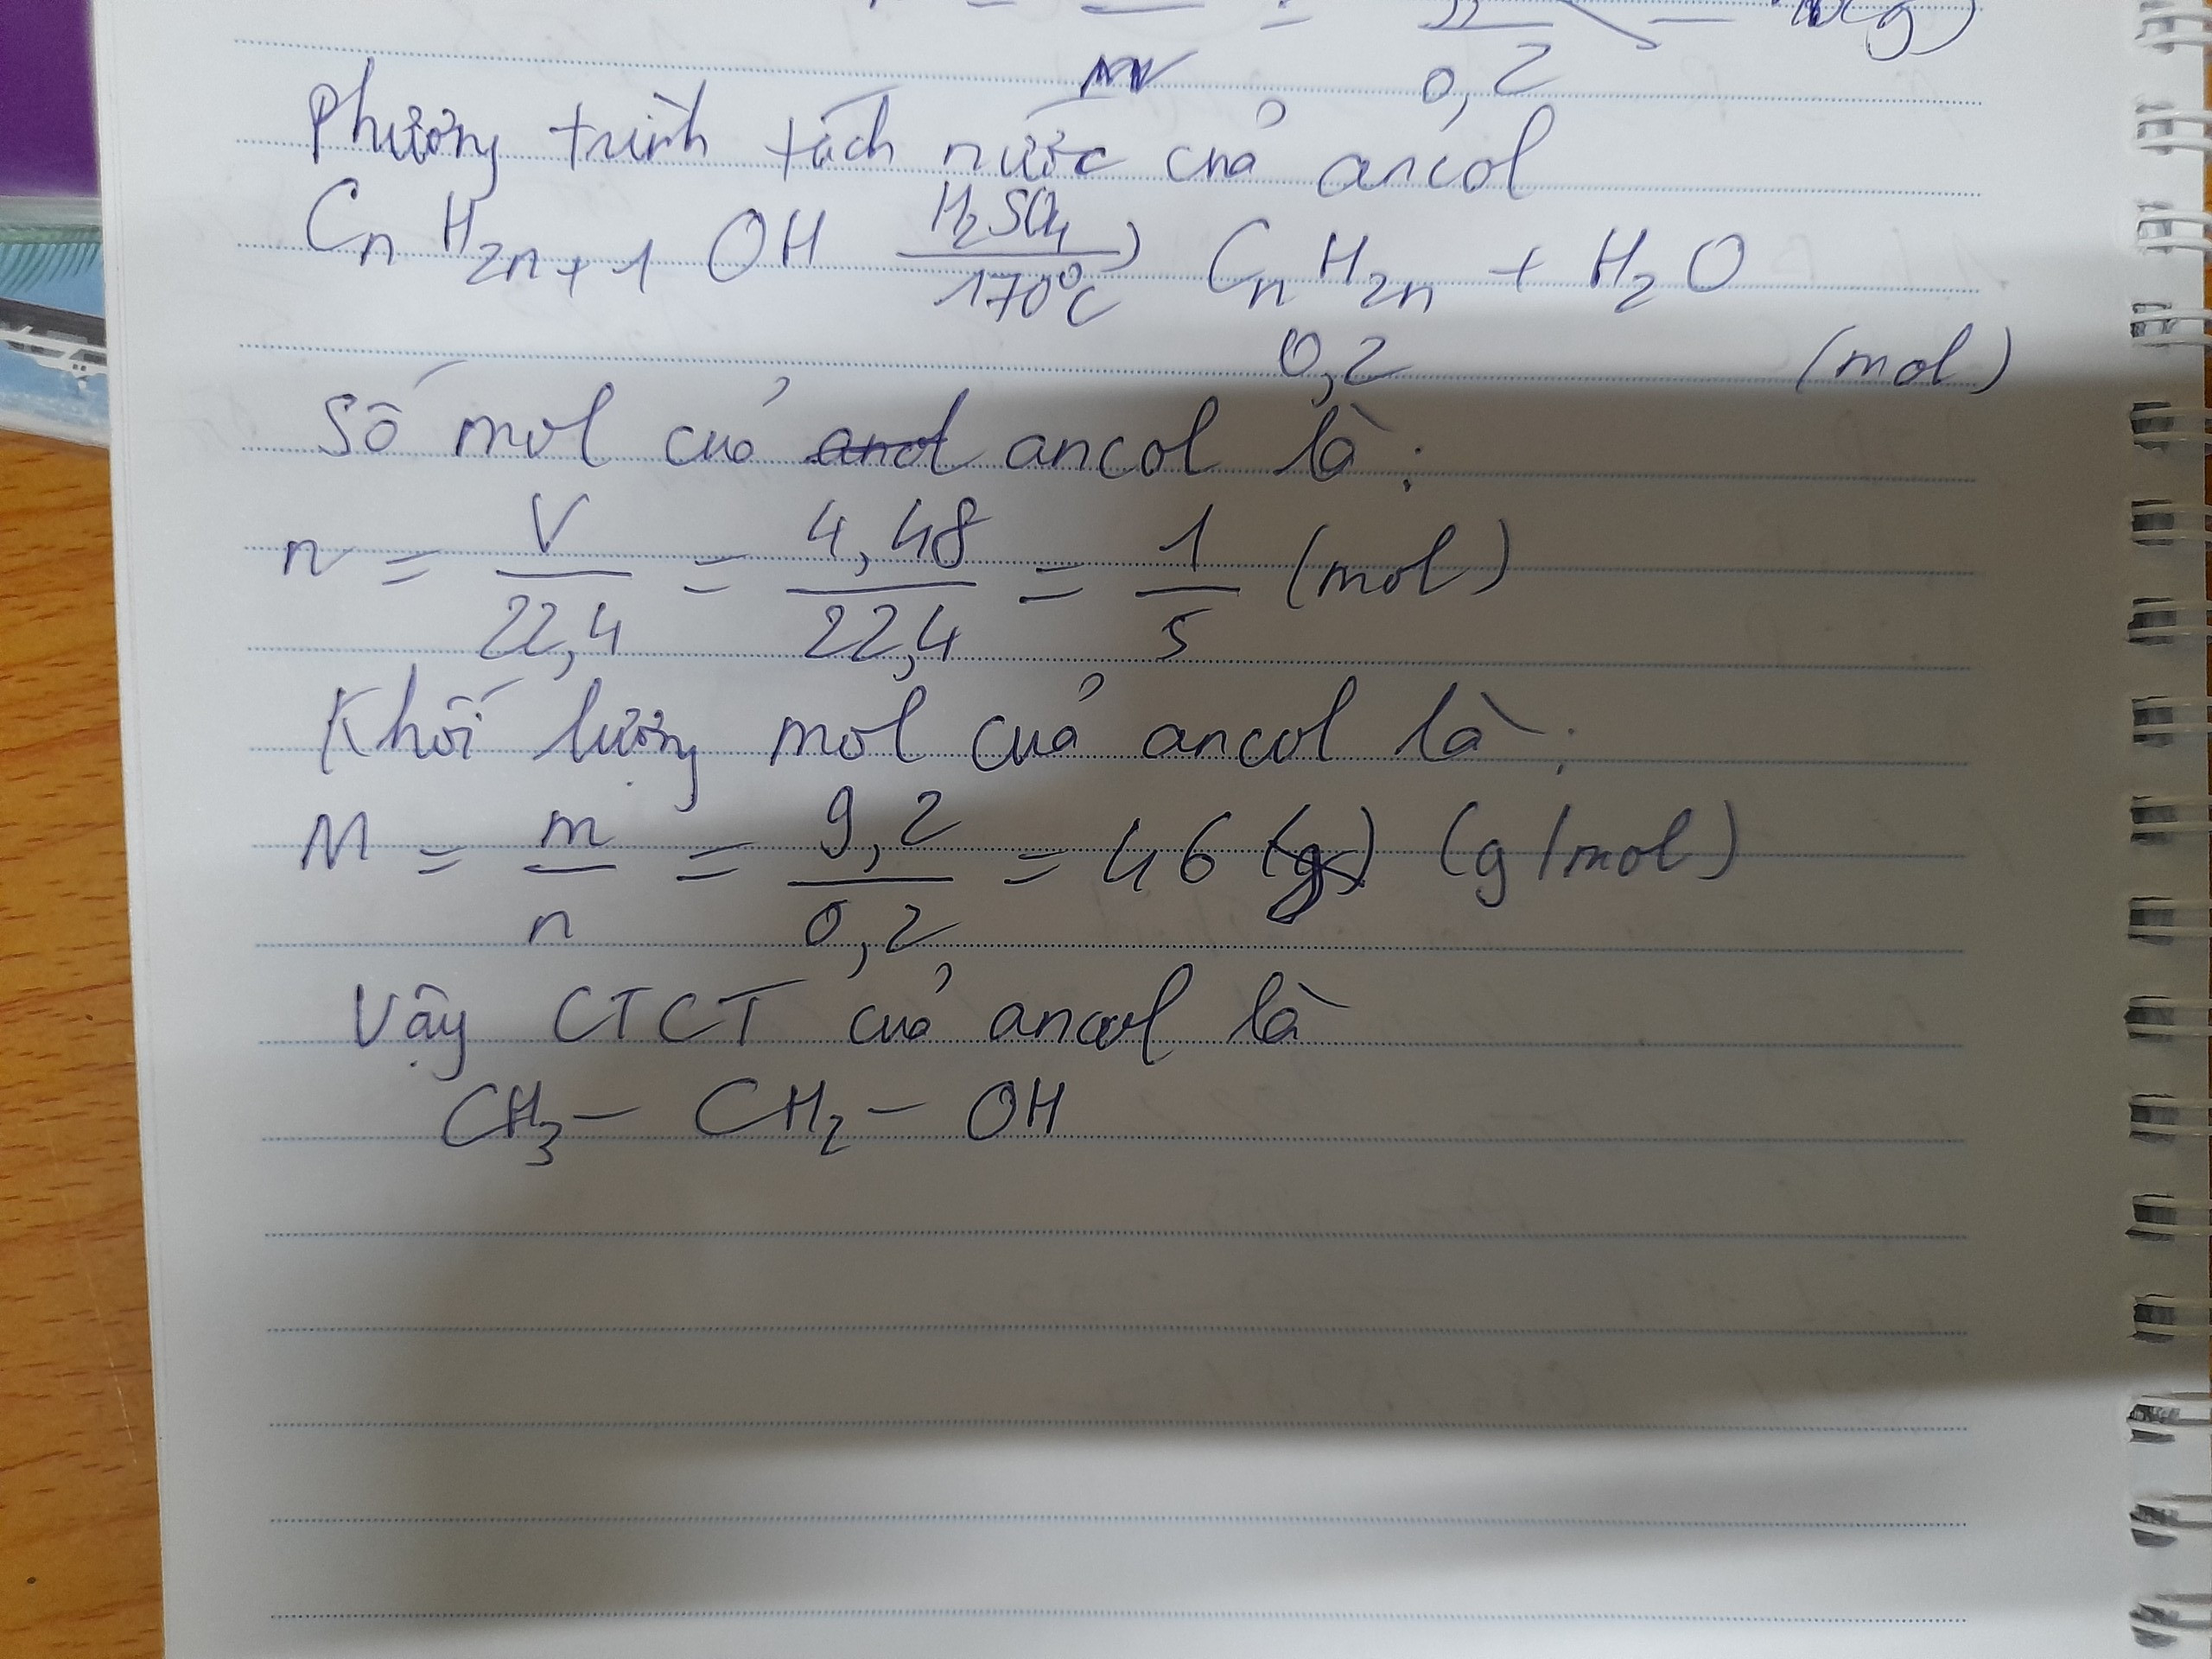 0,2
Phương trình tách nước của ancol
CnH2n+1OH H2SO4 170°C → CnH2n + H2O
0,2 (mol)
Số mol của ancol là:
n = V/22,4 = 4,48/22,4 = 1/5 (mol)
Khối lượng mol của ancol là:
M = m/n = 9,2/0,2 = 46 (g/mol)
Vậy CTCT của ancol là
CH3 – CH2 – OH